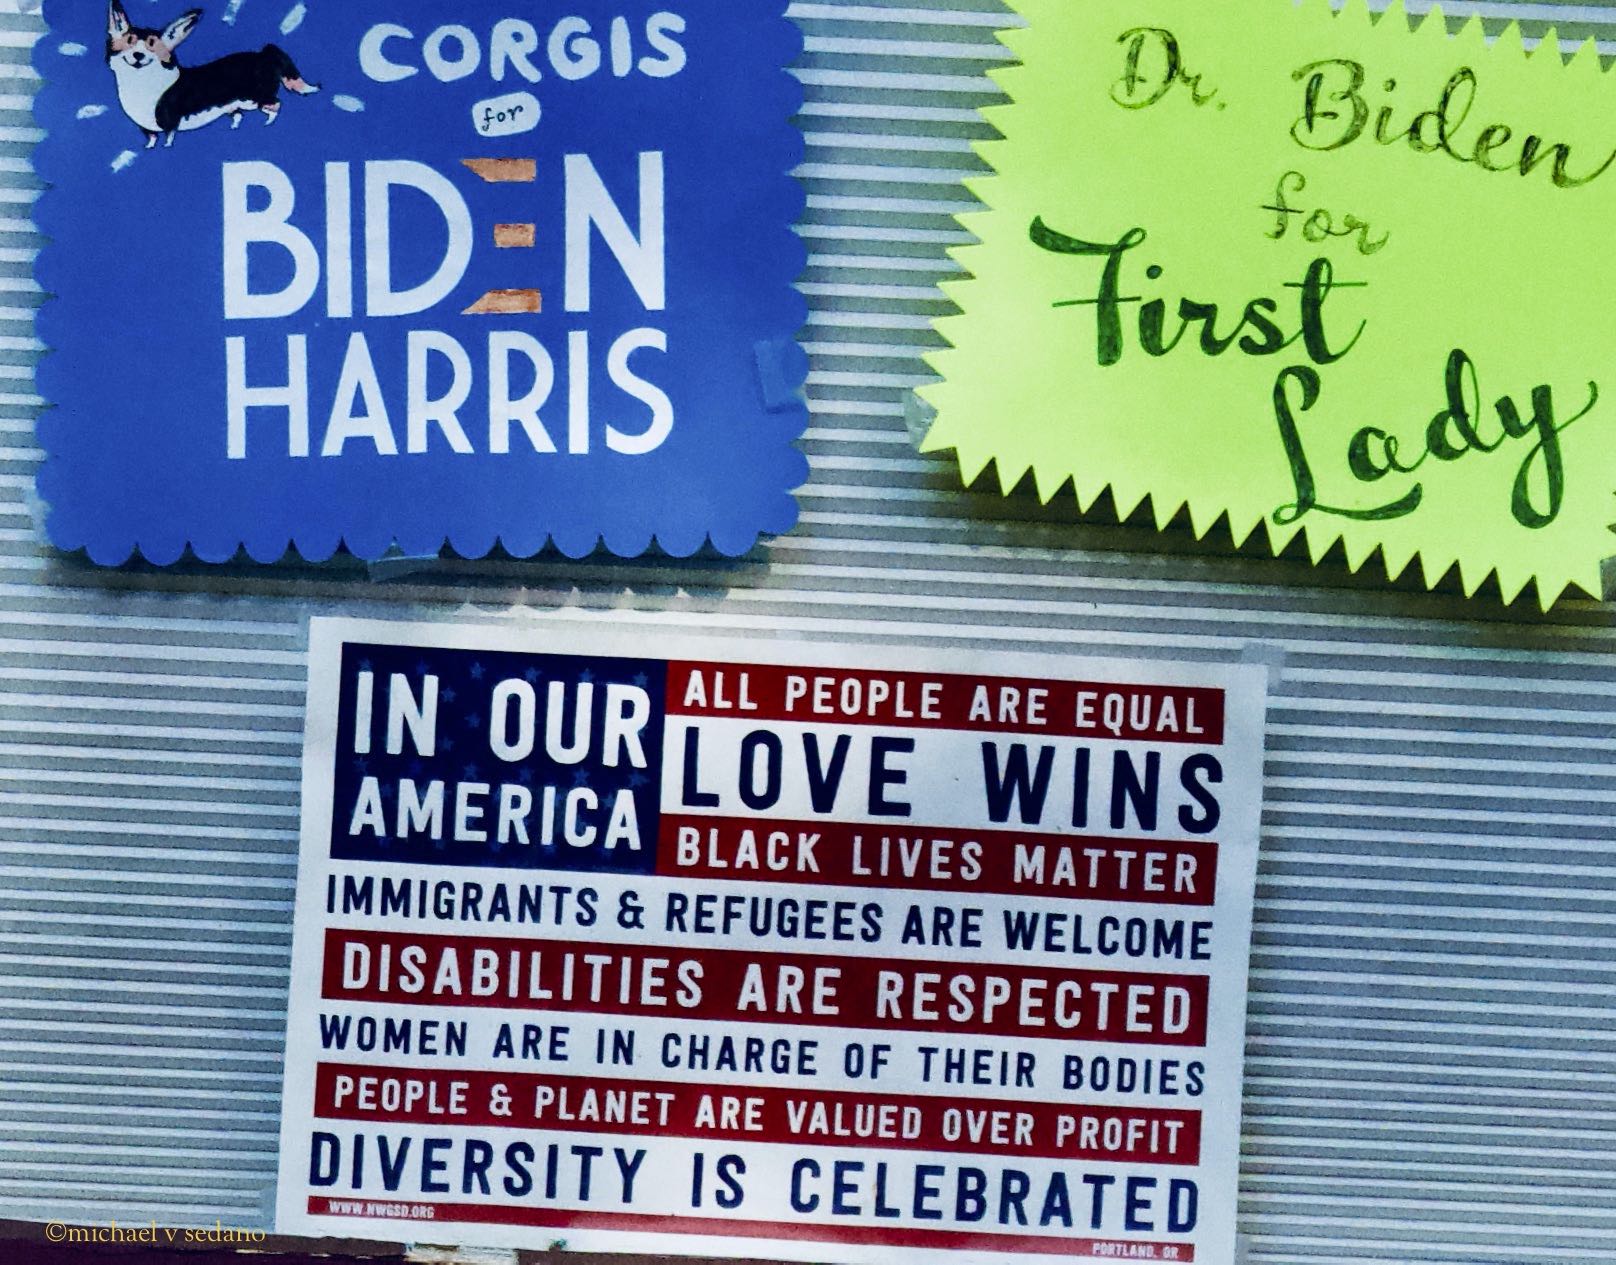 CORGIS
for
BIDEN
HARRIS
Dr. Biden
for
First
Lady
IN OUR
AMERICA
ALL PEOPLE ARE EQUAL
LOVE WINS
BLACK LIVES MATTER
IMMIGRANTS & REFUGEES ARE WELCOME
DISABILITIES ARE RESPECTED
WOMEN ARE IN CHARGE OF THEIR BODIES
PEOPLE & PLANET ARE VALUED OVER PROFIT
DIVERSITY IS CELEBRATED
WWW.NWGSD.ORG
PORTLAND, OR
©michael v sedano